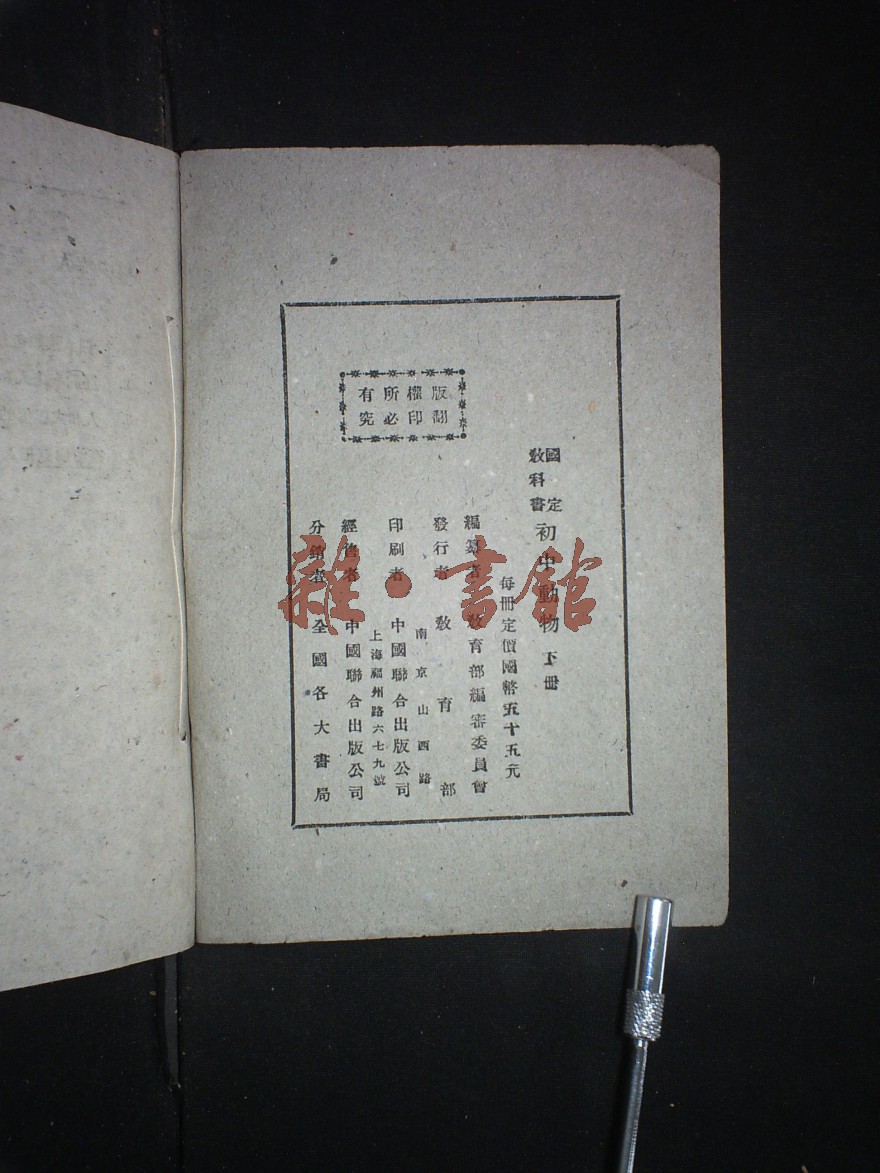 國定
教科書
初中動物 下冊
每冊定價國幣五十五元
編纂者 教育部編審委員會
發行者 教育部
南京山西路
印刷者 中國聯合出版公司
上海福州路六七九號
經售者 中國聯合出版公司
分銷者 全國各大書局
版權所有
翻印必究
雜·書館